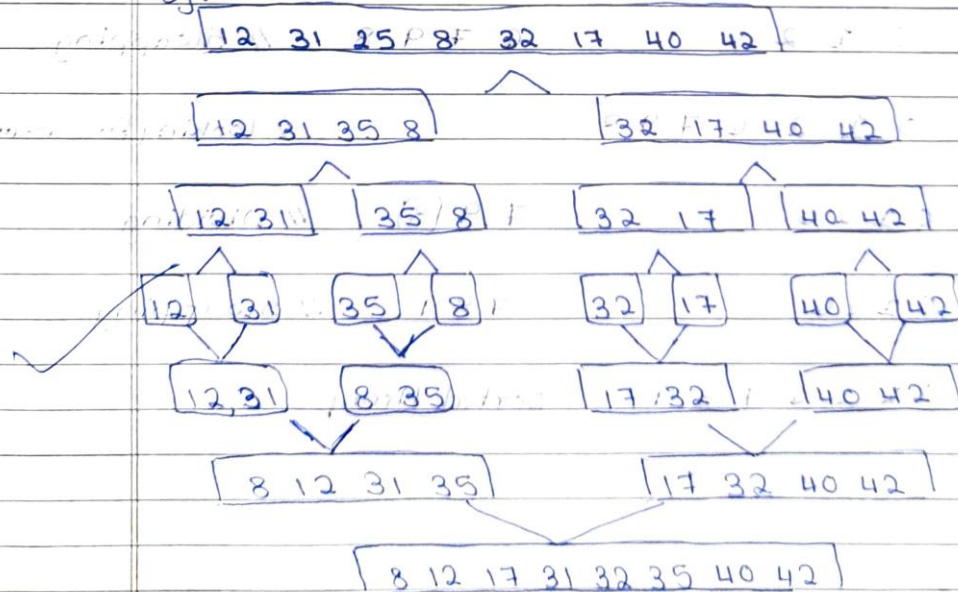 12 31 25 8 32 17 40 42
12 31 35 8 32 17 40 42
12 31 35 8 32 17 40 42
12 31 35 8 32 17 40 42
12,31 8 35 17 32 40 42
8 12 31 35 17 32 40 42
8 12 17 31 32 35 40 42